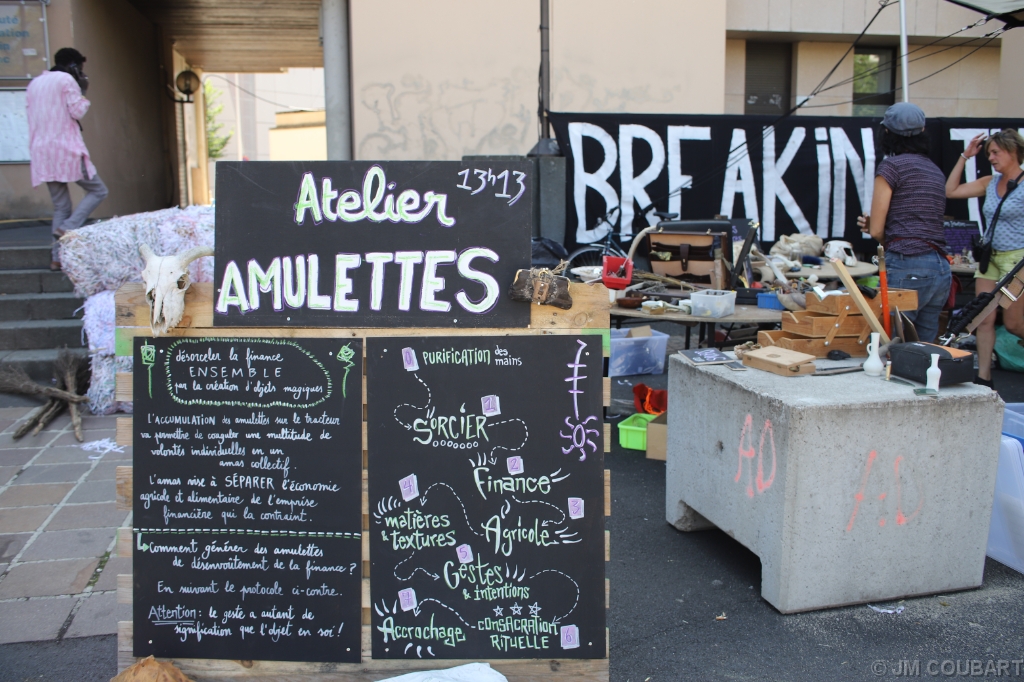 Atelier 13h13
AMULETTES
BREAKiN
désorceler la finance
ENSEMBLE
par la création d'objets magiques
L'ACCUMULATION des amulettes sur le tracteur
va permettre de coaguler une multitude de
volontés individuelles en un
amas collectif.
L'amas vise à SÉPARER l'économie
agricole et alimentaire de l'emprise
financière qui la contraint.
Comment générer des amulettes
de désenvoutement de la finance?
En suivant le protocole ci-contre.
Attention: le geste a autant de
signification que l'objet en soi!
0 PURIFICATION des
mains
1
SORCIER
2
Finance
3
Agricole
4
matières
& textures
5
Gestes
& intentions
CONSACRATION
RITUELLE 6
7
Accrochage
© JM COUBART